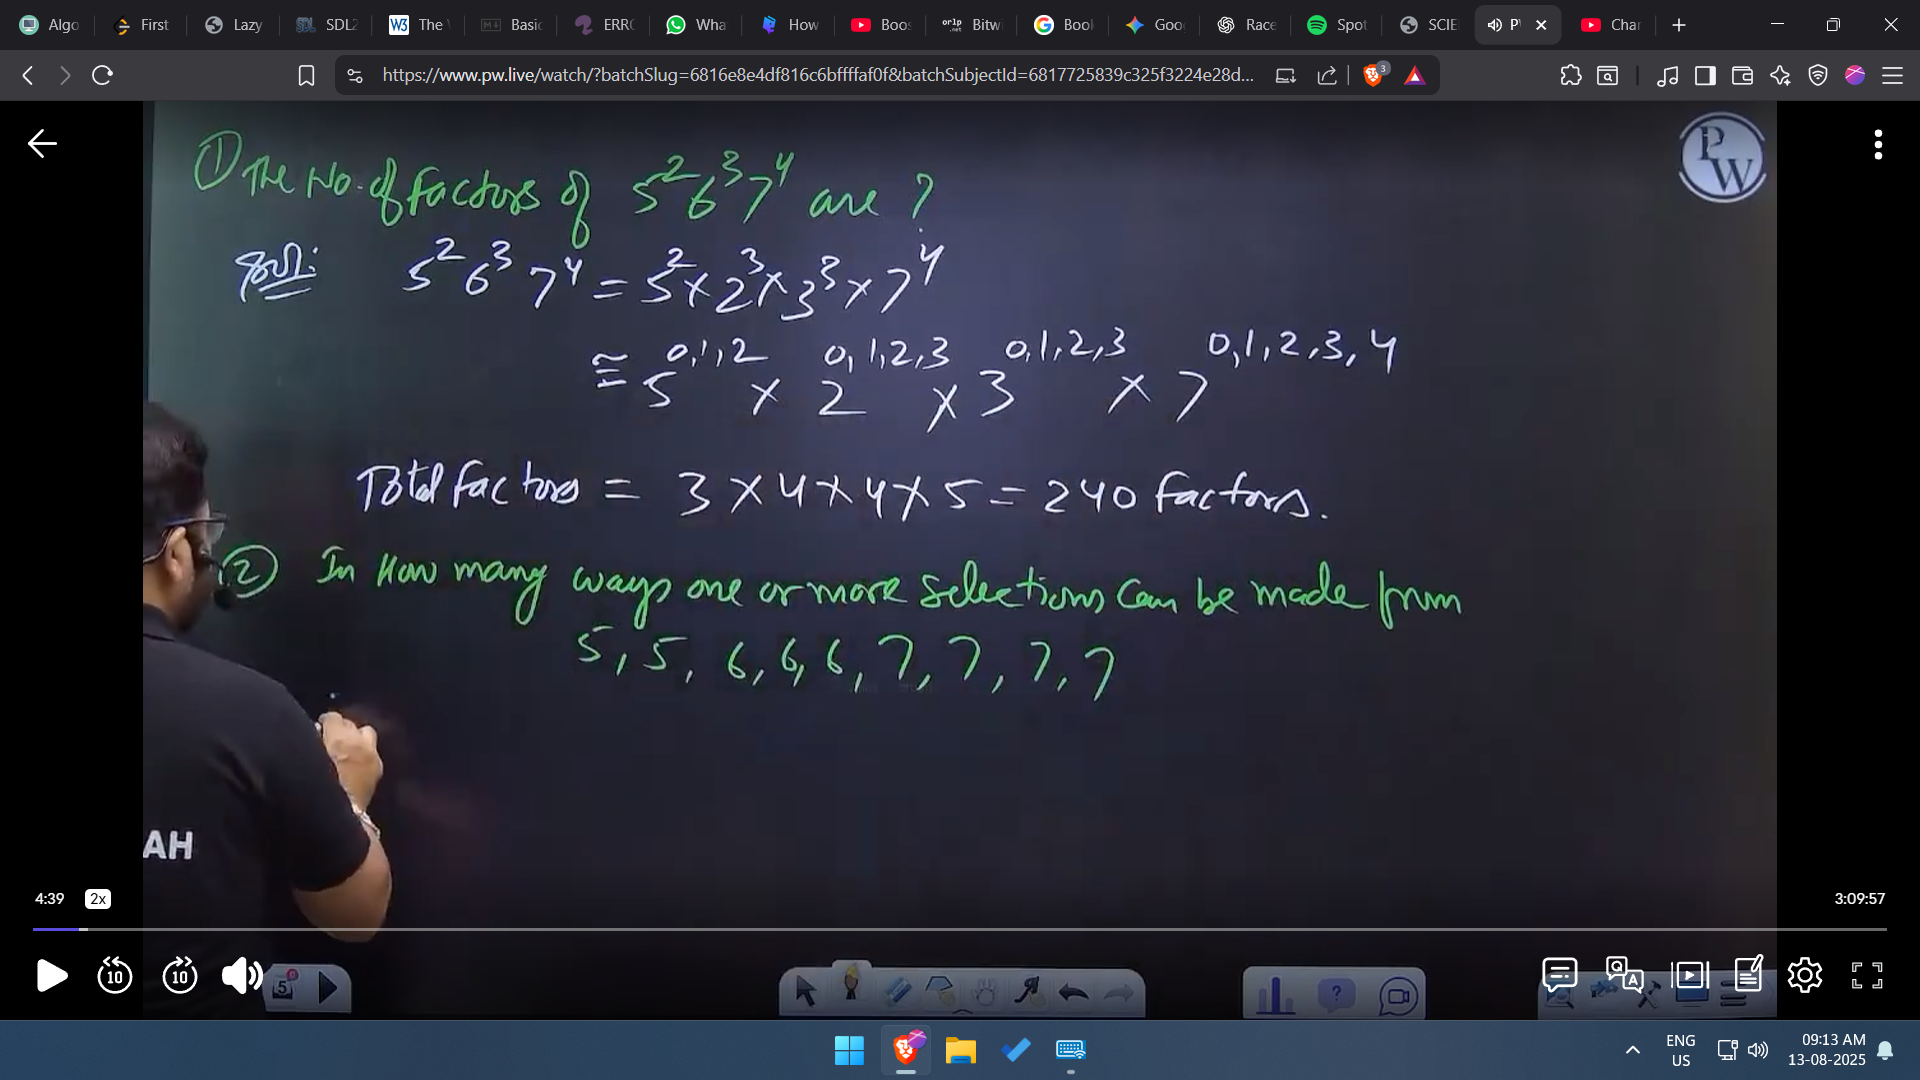 Algo First Lazy SDL2 The Basic ERRO Wha How Boos Bitwi Book Goo Race Spot SCIE P Char
https://www.pw.live/watch/?batchSlug=6816e8e4df816c6bffffaf0f&batchSubjectId=6817725839c325f3224e28d... 3
PW
① The No. of factors of 5²6³7⁴ are ?
Sol: 5²6³7⁴ = 5²×2³×3³×7⁴
≅ 5^{0,1,2} × 2^{0,1,2,3} × 3^{0,1,2,3} × 7^{0,1,2,3,4}
Total factors = 3×4×4×5 = 240 factors.
② In How many ways one or more selections can be made from
5, 5, 6, 6, 6, 7, 7, 7, 7
AH
4:39 2x 3:09:57
10 10
ENG 09:13 AM
US 13-08-2025